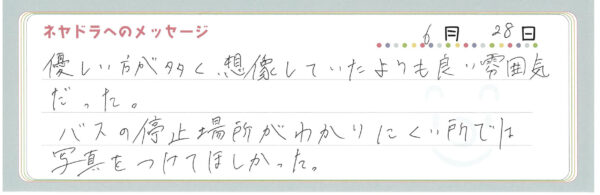 ネヤドラへのメッセージ
6月 28日
優しい方が多く想像していたよりも良い雰囲気
だった。
バスの停止場所がわかりにくい所では
写真をつけてほしかった。